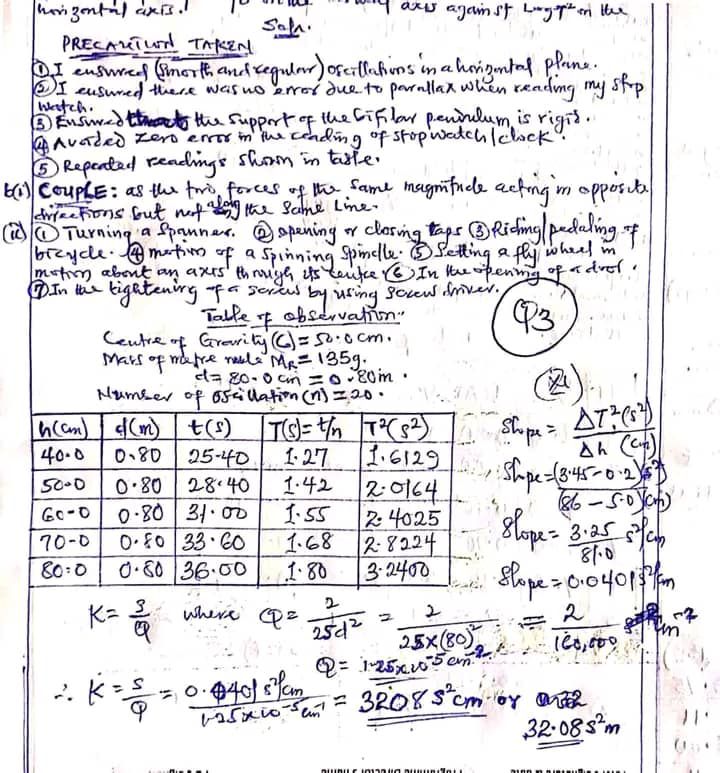 horizontal axis. axis against the
Soln.
PRECAUTION TAKEN
① I ensured (smooth and regular) oscillations in a horizontal plane.
② I ensured there was no error due to parallax when reading my stop
watch.
③ Ensured the support of the bifilar pendulum is rigid.
④ Avoided zero error in the reading of stopwatch/clock.
⑤ Repeated readings shown in table.
b(i) COUPLE: as the two forces of the same magnitude acting in opposite
directions but not along the same line.
(ii) ① Turning a spanner. ② opening or closing taps ③ Riding/pedaling of
bicycle. ④ motion of a spinning spindle. ⑤ Setting a fly wheel in
motion about an axis through its centre ⑥ In the opening of a door.
⑦ In the tightening of a screw by using screw driver.
Table of observation
Q3
Centre of Gravity (G) = 50.0cm.
Mass of metre rule MR = 135g.
d = 80.0cm = 0.80m.
Number of oscillation (n) = 20.
h(cm) d(m) t(s) T(s)=t/n T²(s²)
40.0 0.80 25.40 1.27 1.6129
50.0 0.80 28.40 1.42 2.0164
60.0 0.80 31.00 1.55 2.4025
70.0 0.80 33.60 1.68 2.8224
80.0 0.80 36.00 1.80 3.2400
Slope = ΔT²(s²) / Δh (cm)
Slope = (3.45 - 0.2)s² / (86 - 5.0)(cm)
Slope = 3.25 / 81.0 s²/cm
Slope = 0.0401 s²/cm
K = S/Q where Q = 2/25d² = 2/25x(80)² = 2/160,000 cm⁻²
Q = 1.25x10⁻⁵cm⁻²
∴ K = S/Q = 0.0401 s²/cm / 1.25x10⁻⁵cm⁻¹ = 3208 s²cm or
32.08s²m